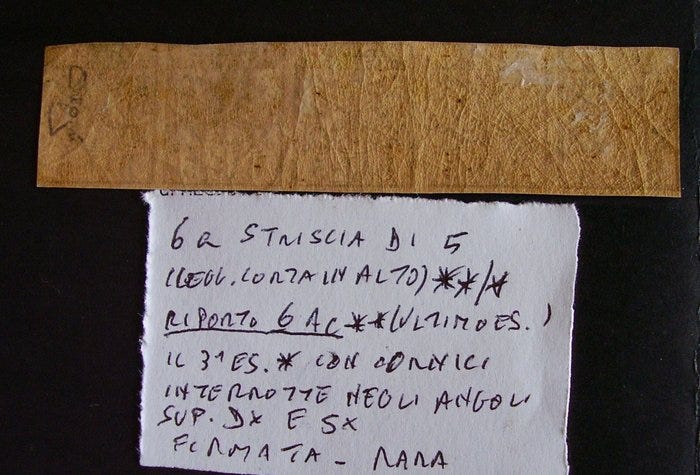 6a STRISCIA DI 5
(LEGG. CORTA IN ALTO) **/*
RIPORTO 6 Ac **(ULTIMO ES.)
IL 3° ES. * CON CORNICI
INTERROTTE NEGLI ANGOLI
SUP. DX E SX
FIRMATA - RARA